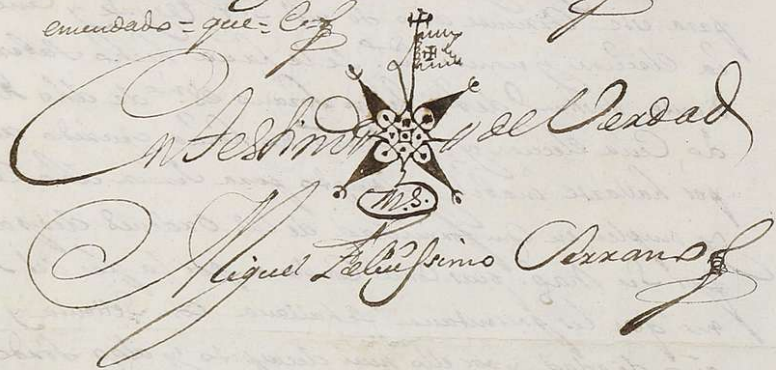 emendado = que = e =
En testimo o de Verdad
M.S.
Miguel Feliussimo Serrano